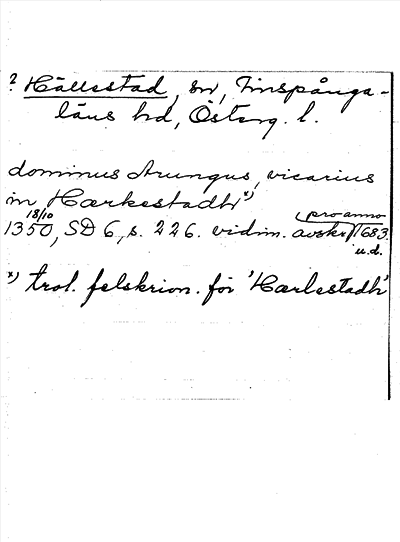 ? Hällestad, sn, Finspånga-
läns hd, Österg. l.
dominus Arungus, vicarius
in Hærkestadh x)
18/10 pro anno
1350, SD 6, s. 226. vidim. avskr 1683.
u.d.
x) trol. felskrivn. för 'Hærlestadh'